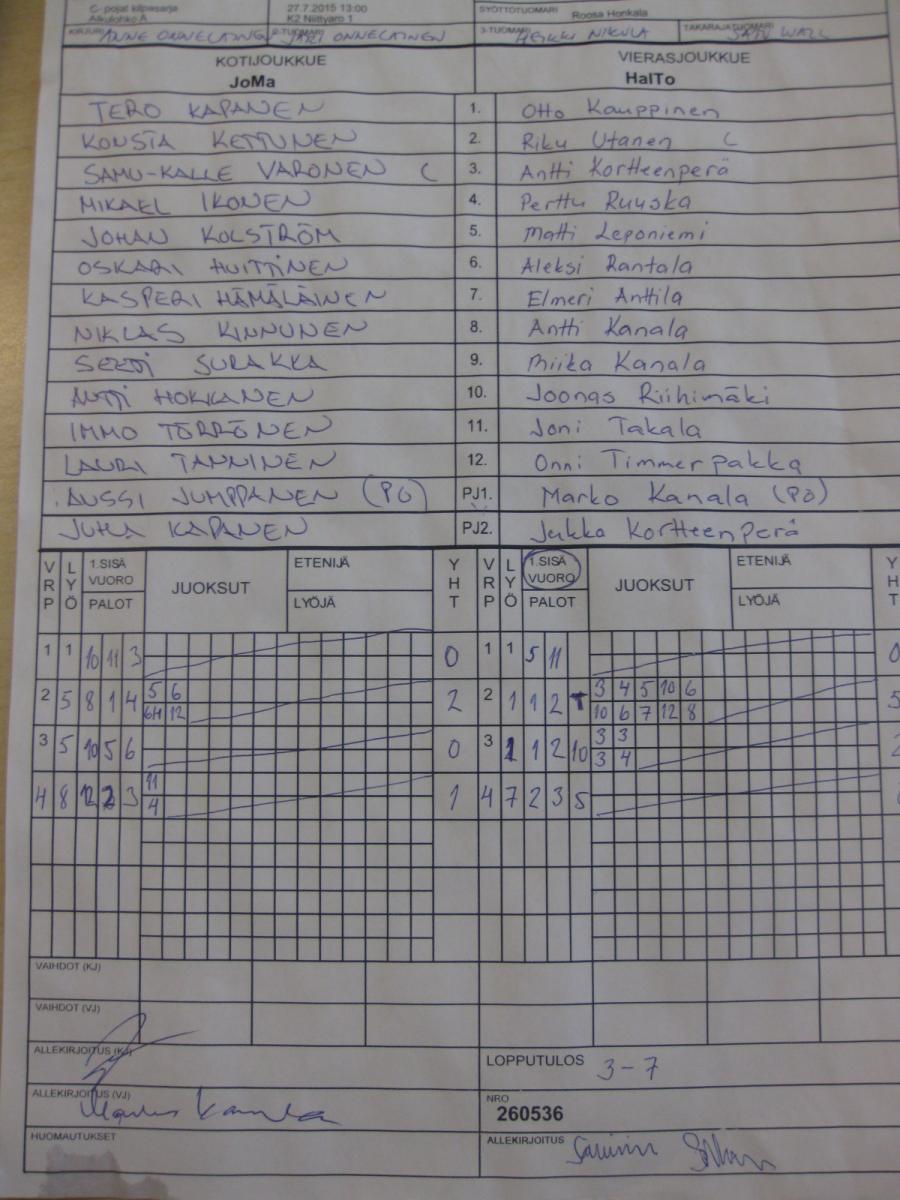 C- pojat kilpasarja 27.7.2015 13:00 SYÖTTÖTUOMARI Roosa Honkala
Alkulohko A K2 Niittyaro 1
KIRJURI ANNE ONNELAINEN 2-TUOMARI JARI ONNELAINEN 3-TUOMARI HEIKKI NIKULA TAKARAJATUOMARI SATU WALL
KOTIJOUKKUE VIERASJOUKKUE
JoMa HalTo
TERO KAPANEN 1. Otto Kauppinen
KONSTA KETTUNEN 2. Riku Utanen C
SAMU-KALLE VARONEN C 3. Antti Kortteenperä
MIKAEL IKONEN 4. Perttu Ruuska
JOHAN KOLSTRÖM 5. Matti Leponiemi
OSKARI HUITTINEN 6. Aleksi Rantala
KASPERI HÄMÄLÄINEN 7. Elmeri Anttila
NIKLAS KINNUNEN 8. Antti Kanala
SURAKKA 9. Miika Kanala
ANTTI HOKKANEN 10. Joonas Riihimäki
IMMO TÖRRÖNEN 11. Joni Takala
LAURI TANNINEN 12. Onni Timmerpakka
JUMPPANEN (PO) PJ1. Marko Kanala (PO)
JUHA KAPANEN PJ2. Jukka Kortteenperä
VRP LYÖ 1.SISÄ VUORO PALOT JUOKSUT ETENIJÄ LYÖJÄ YHT VRP LYÖ 1.SISÄ VUORO PALOT JUOKSUT ETENIJÄ LYÖJÄ YHT
1 1 10 11 3 0 1 1 5 11 0
5 6 3 4 5 10 6
2 5 8 1 4 2 2 1 1 2 T 5
6H 12 10 6 7 12 8
3 3
3 5 10 5 6 0 3 1 1 2 10 2
3 4
11
4 8 12 2 3 1 4 7 2 3 5
4
VAIHDOT (KJ)
VAIHDOT (VJ)
ALLEKIRJOITUS (KJ) LOPPUTULOS 3-7
ALLEKIRJOITUS (VJ) NRO
260536
HUOMAUTUKSET ALLEKIRJOITUS